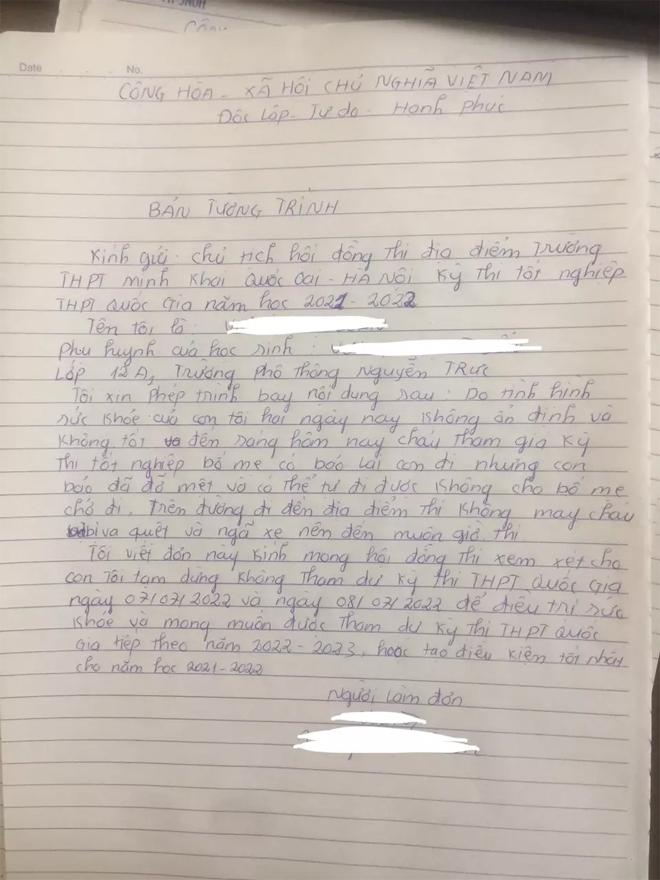 CÔNG
Date No.
CÔNG HÒA - XÃ HỘI CHỦ NGHĨA VIỆT NAM
Độc Lập - Tự do - Hạnh phúc
BẢN TƯỜNG TRÌNH
Kính gửi: chủ tịch hội đồng thi địa điểm Trường
THPT minh Khai Quốc Oai - HÀ NỘI Kỳ thi tốt nghiệp
THPT QUỐC Gia năm học 2021 - 2022
Tên tôi là:
phụ huynh của học sinh:
Lớp 12A, Trường phổ thông Nguyễn TRực
Tôi xin phép trình bày nội dung sau: Do tình hình
sức khỏe của con tôi hai ngày nay không ổn định và
không tốt đến sáng hôm nay cháu tham gia kỳ
thi tốt nghiệp bố mẹ có bảo lai con đi nhưng con
báo đã đỡ mệt và có thể tự đi được không cho bố mẹ
chở đi. Trên đường đi đến địa điểm thi không may cháu
bị va quệt và ngã xe nên đến muộn giờ thi
Tôi viết đơn này kính mong hội đồng thi xem xét cho
con tôi tạm dừng không tham dự kỳ thi THPT Quốc Gia
ngày 07/07/2022 và ngày 08/07/2022 để điều trị sức
khỏe và mong muốn được tham dự kỳ thi THPT Quốc
Gia tiếp theo năm 2022 - 2023, hoặc tạo điều kiện tốt nhất
cho năm học 2021 - 2022
Người làm đơn